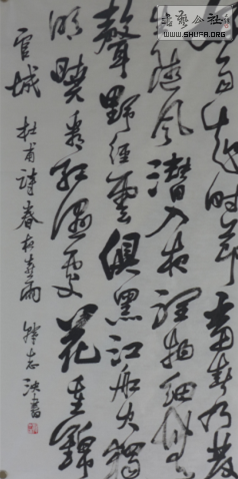 书艺公社
WWW.SHUFA.ORG
好雨知時節當春乃發
生隨風潛入夜潤物細無
聲野徑雲俱黑江船火獨
明曉看紅濕處花重錦
官城 杜甫詩春夜喜雨 志 書